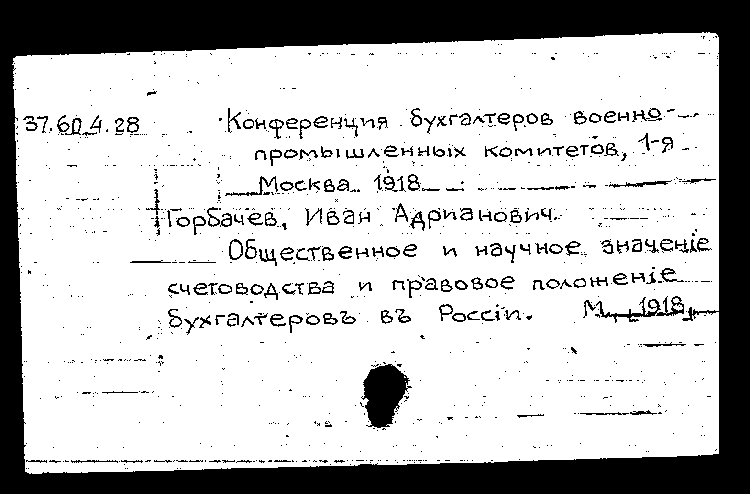 37.60.4.28 Конференция бухгалтеров военно-
промышленных комитетов, 1-я
Москва 1918
Горбачев, Иван Адрианович.
Общественное и научное значенiе
счетоводства и правовое положенiе
бухгалтеровъ въ Россiи. М., 1918,